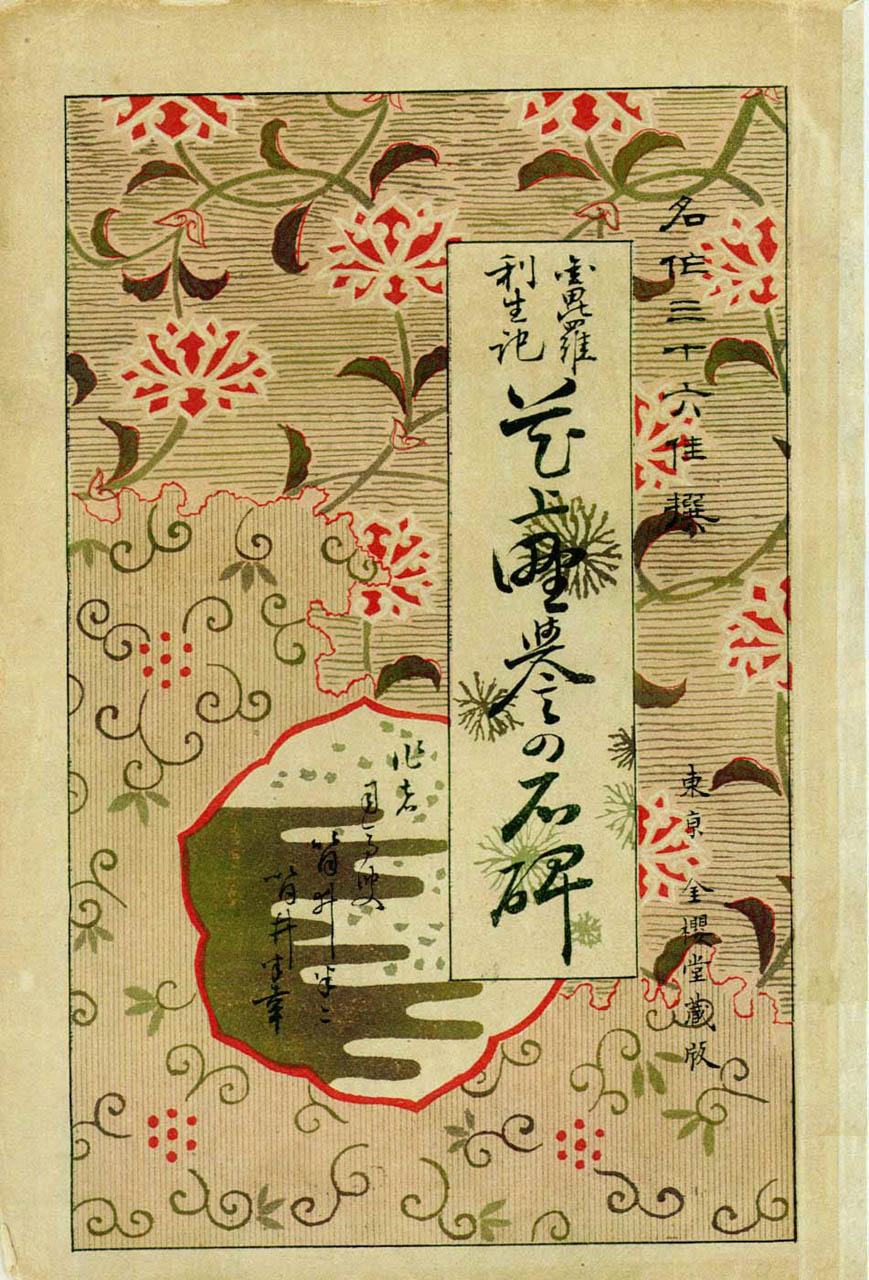 名作三十六佳撰
東京 金櫻堂藏版
金毘羅
利生記
花上野譽の石碑
作者
筒井半二
筒井半幸